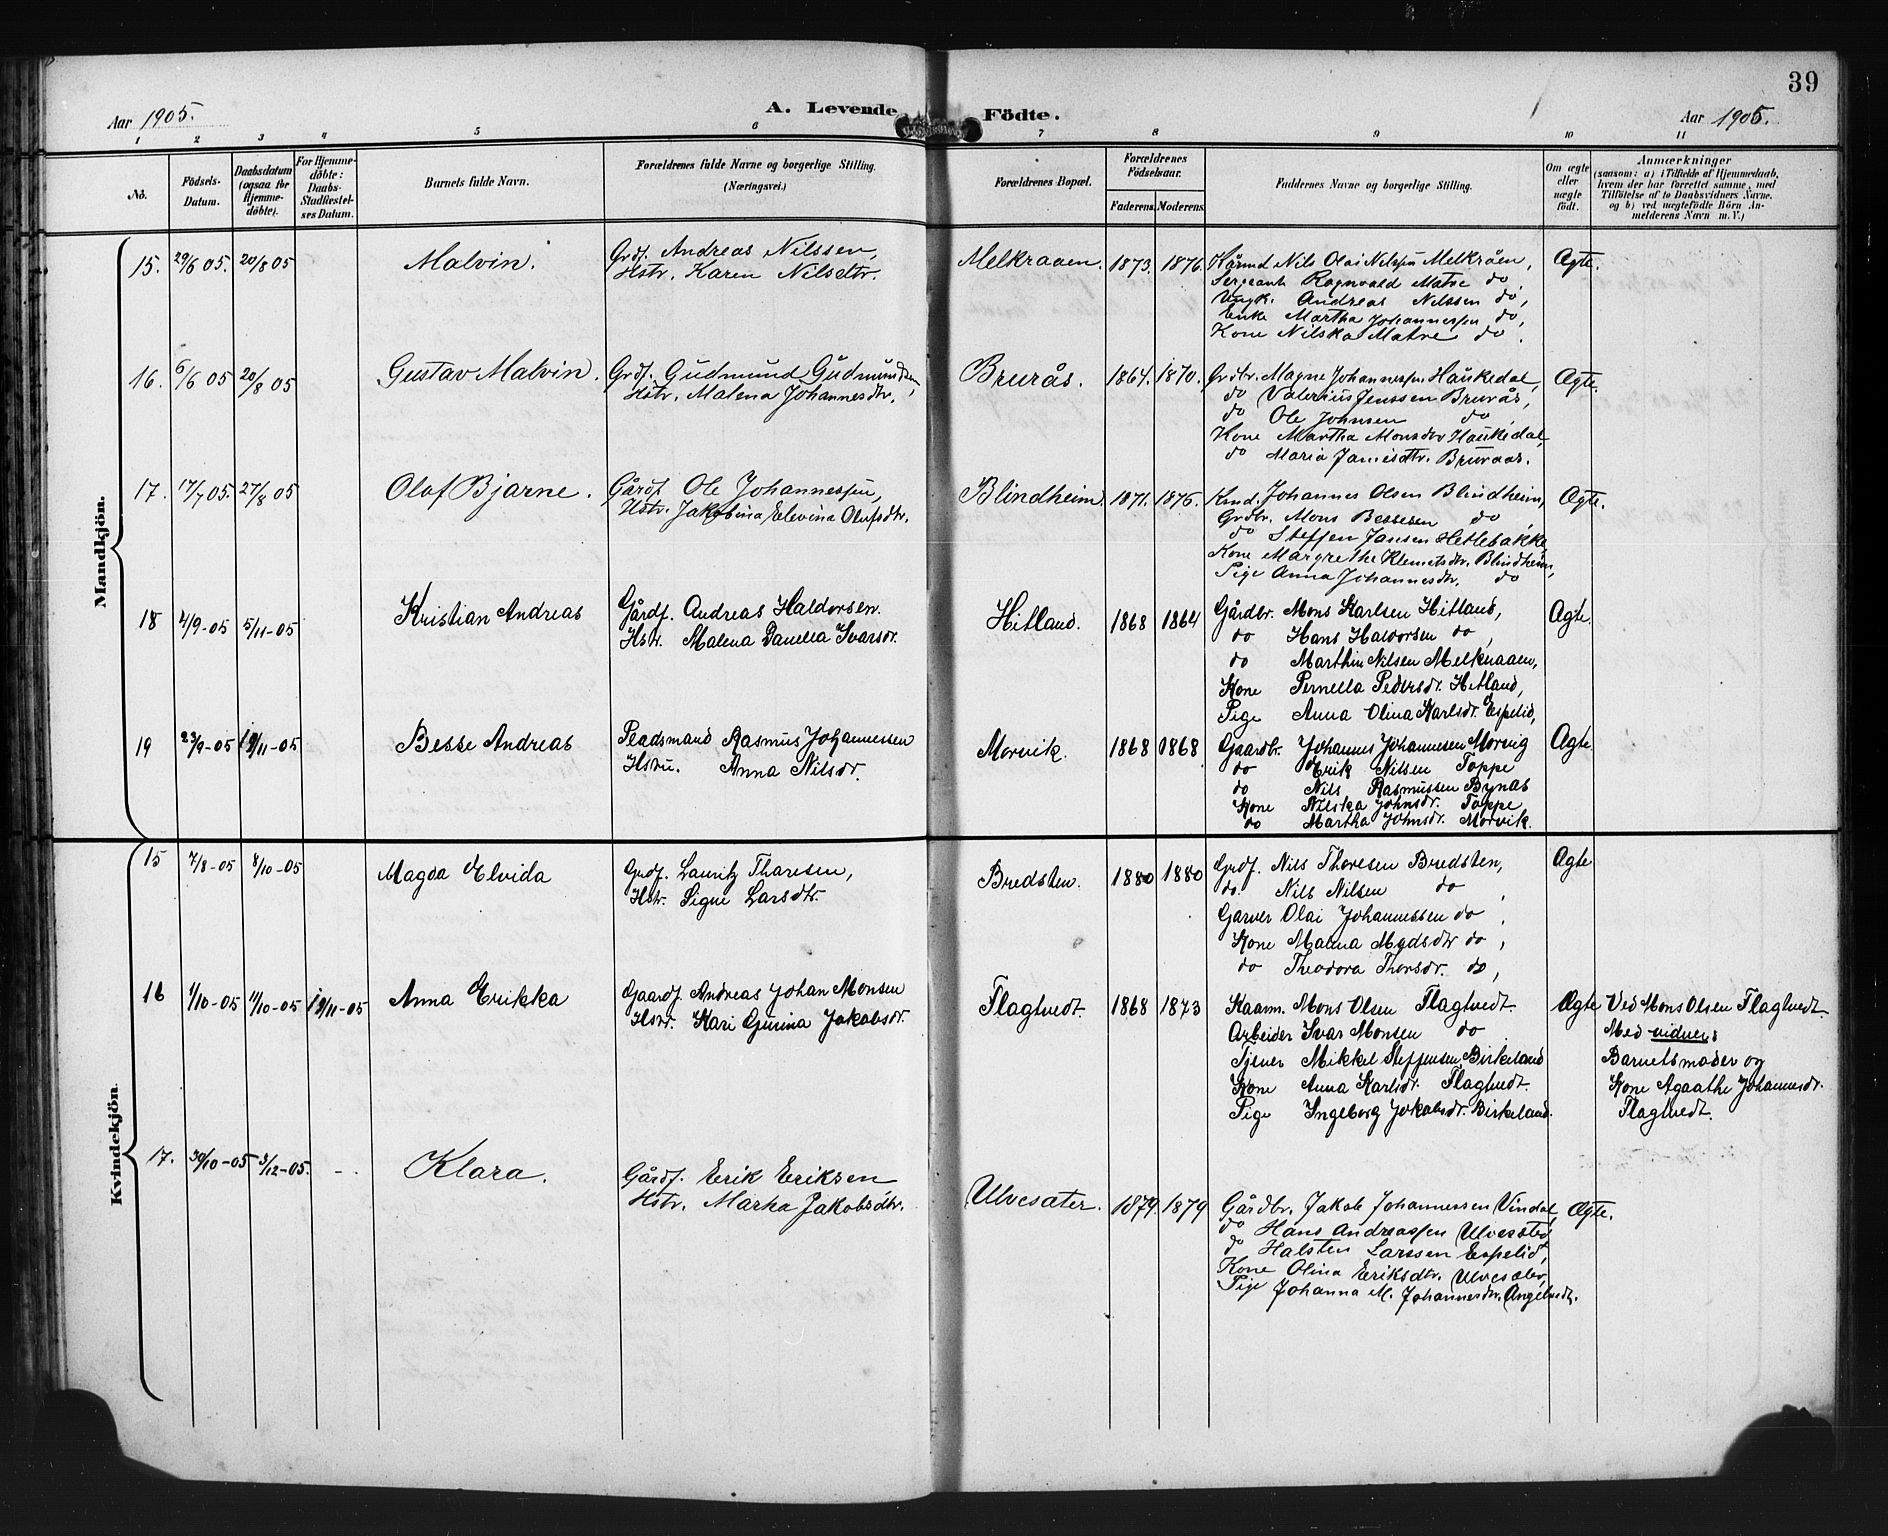 39
Aar 1905.
A. Levende Födte.
Aar 1905.
1 2 3 4 5 6 7 8 9 10 11
No.
Födsels-Datum.
Daabsdatum (ogsaa for Hjemme-döbte).
For Hjemme-döbte: Daabs-Stadfæstel-ses Datum.
Barnets fulde Navn.
Forældrenes fulde Navne og borgerlige Stilling.
(Næringsvei.)
Forældrenes Bopæl.
Forældrenes Födselsaar.
Faderens. Moderens.
Faddernes Navne og borgerlige Stilling.
Om ægte eller uægte födt.
Anmærkninger
(saasom: a) i Tilfælde af Hjemmedaab,
hvem der har forrettet samme, med
Tilföielse af to Daabsvidners Navne,
og b) ved uægtefödte Börn An-
melderens Navn m. V.)
Mandkjön.
15. 29/6 05. 20/8 05 Malvin. Grdf. Andreas Nilssen, Melkraaen. 1873. 1876. Nils Olai Nilsen Melkråen, Ægte.
Hstr. Karen Nilsdtr. Sergeant Ragnvald Matre do
Ungk. Andreas Nilssen do,
Enke Martha Johannessen do,
Kone Nilska Matre do.
16. 6/6 05 20/8 05 Gustav Malvin. Grdf. Gudmund Gudmundsen, Brurås. 1864. 1870. Grdbr. Magne Johannessen Haukedal, Ægte.
Hstr. Malena Johannesdtr. do Valerius Jenssen Brurås,
do Ole Johnsen do,
Kone Martha Monsdtr Haukedal,
do Maria Jamesdtr. Bruraas.
17. 17/7 05. 27/8 05 Olaf Bjarne. Gårdf. Ole Johannessen, Blindheim. 1871. 1875. Kmd. Johannes Olsen Blindheim, Ægte.
Hstr. Jakobina Elevina Olufsdtr. Grdbr. Mons Bessesen do,
do Steffen Jansen Hetlebakke,
Kone Margrethe Klemetsdtr. Blindheim,
Pige Anna Johannesdtr. do
18 4/9-05 5/11-05 Kristian Andreas Gårdf. Andreas Haldorsen. Hitland. 1868 1864 Gårdbr. Mons Karlsen Hitland, Ægte.
Hstr. Malena Danella Ivarsdr. do Hans Haldorsen do,
do Marthin Nilsen Melkraaen,
Kone Pernella Pedersdr. Hitland,
Pige Anna Olina Karlsdr. Espelid,
19 23/9-05 19/11-05 Besse Andreas Pladsmand Rasmus Johannessen Morvik. 1868 1868 Gaardbr. Johannes Johannesen Morvig Ægte.
Hstru. Anna Nilsdr. do Erik Nilsen Toppe
do Nils Rasmussen Bynas
Kone Nilska Johnsdr. Toppe
do Martha Johnsdr. Morvik.
Kvindekjön.
15 7/8-05 8/10-05 Magda Elvida Grdf. Lauritz Tharesen, Bredsten. 1880 1880 Grdf. Nils Thoresen Bredsten, Ægte
Hstr. Signe Larsdtr. do. Nils Nilsen do,
Garver Olai Johannessen do,
Kone Madsdtr do,
do Theodora Thorsdr. do,
16 1/10-05 11/10-05 19/11-05 Anna Erikka Gaardf. Andreas Johan Monsen Flagtvedt. 1868 1873 Kaarm. Mons Olsen Flagtvedt. Ægte Ved Mons Olsen Flagtvedt.
Hstr. Kari Gurina Jakobsdr. Arbeider Ivar Monsen do Med vidner:
Tjener Mikkel Steffensen Birkeland Barnetsmoder og
Kone Anna Karlsdr. Flagtvedt. Kone Agaathe Johannesdr.
Pige Ingeborg Jokobsdr. Birkeland. Flagtvedt.
17. 30/10-05 3/12-05. -- Klara. Gårdf. Erik Eriksen Ulvesæter. 1879. 1879 Gårdbr. Jakob Johannessen Vindal, Ægte.
Hstr. Marha Jakobsdtr. do Hans Andreassen
do Halsten Larssen Espelid,
Kone Olina Eriksdtr. Ulvesæter,
Pige Johanna M. Johannesdtr.